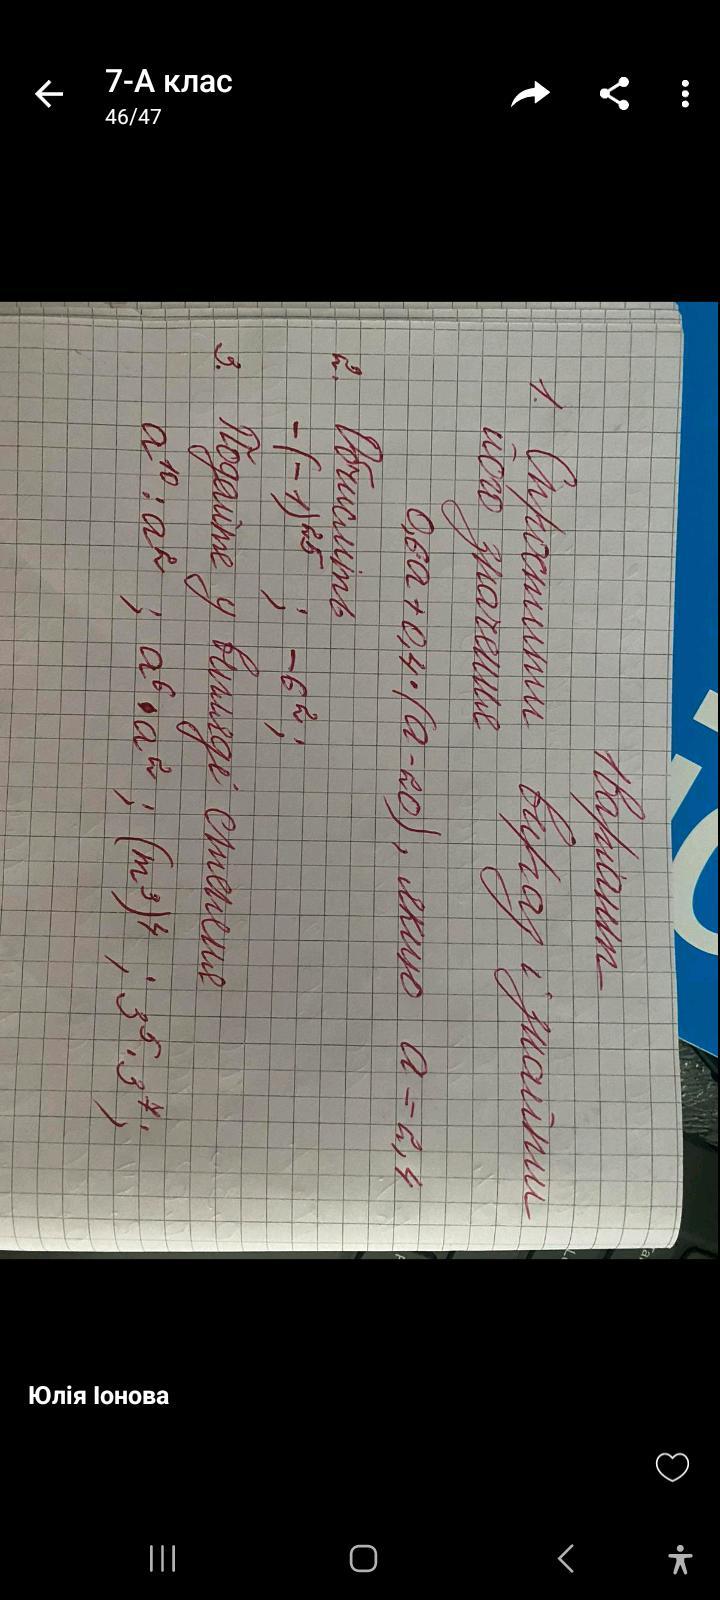 7-А клас
46/47
1 варіант
1. Спростити вираз і знайти
його значення
0,6a + 0,4·(a - 20), якщо a = 2,4
2. Обчисліть
-(-1)²⁵ ; -6² ;
3. Подайте у вигляді степеня
a¹⁰ : a² ; a⁶ · a² ; (m³)⁴ ; 3⁵ · 3⁷ ;
Юлія Іонова